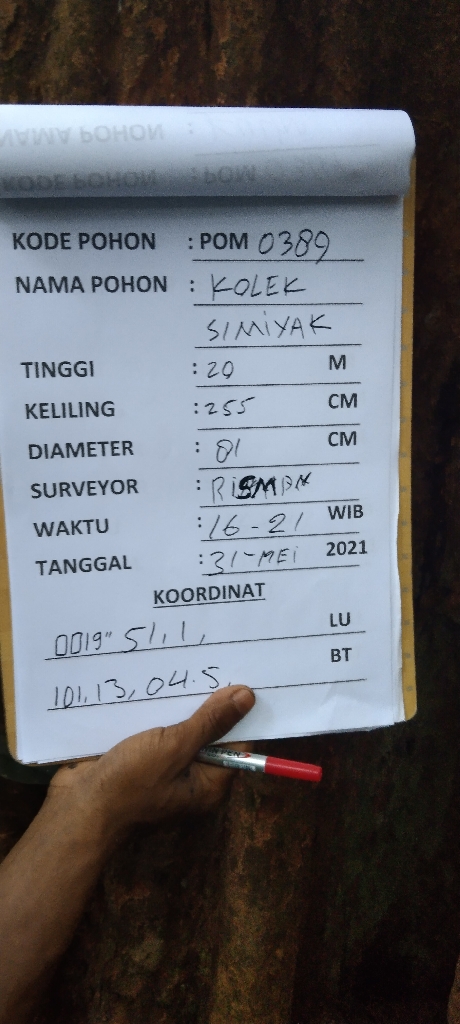 KODE POHON : POM 0389
NAMA POHON : KOLEK
SIMIYAK
TINGGI : 20 M
KELILING : 255 CM
DIAMETER : 81 CM
SURVEYOR : RISMAN
WAKTU : 16-21 WIB
TANGGAL : 31-MEI 2021
KOORDINAT
0019" 51,1, LU
101,13,04.5, BT